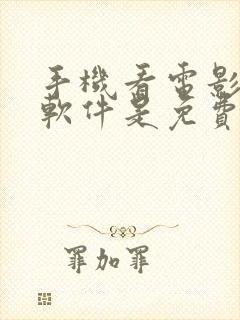 手機看電影
軟件是免費
罪加罪